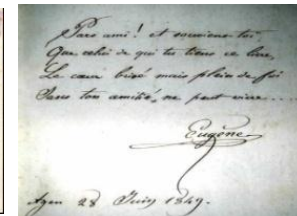 Pars ami ! et souviens-toi
Que celui de qui tu tiens ce livre,
Le cœur brisé mais plein de foi
Sans ton amitié, ne peut vivre...
Eugène
Agen 28 Juin 1849.